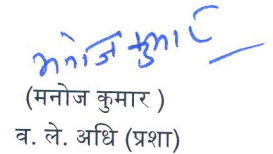 मनोज कुमार
(मनोज कुमार )
व. ले. अधि (प्रशा)